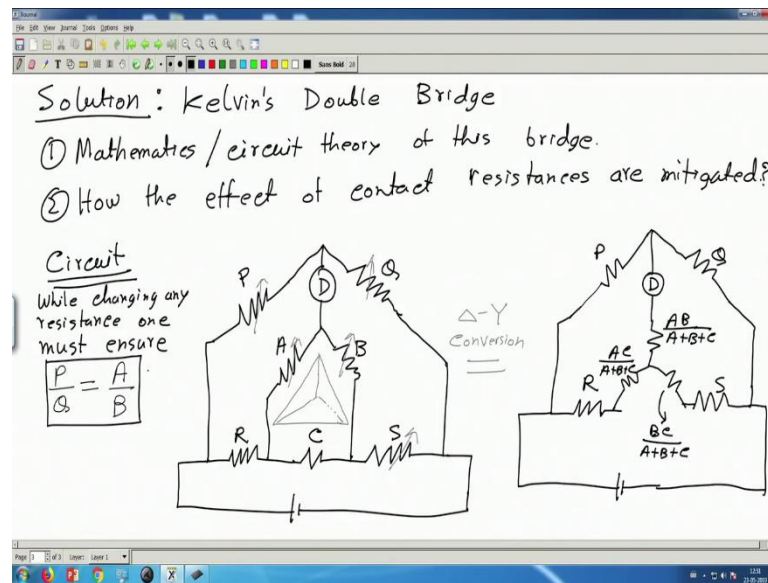 Journal
File Edit View Journal Tools Options Help
Sans Bold 20
Solution : Kelvin's Double Bridge
① Mathematics / circuit theory of this bridge.
② How the effect of contact resistances are mitigated?
Circuit
While changing any
resistance one
must ensure
P/Q = A/B
P
Q
D
A
B
R
C
S
Δ-Y
Conversion
P
Q
D
AB/A+B+C
AC/A+B+C
R
S
BC/A+B+C
Page 3 of 3 Layer: Layer 1
12:51